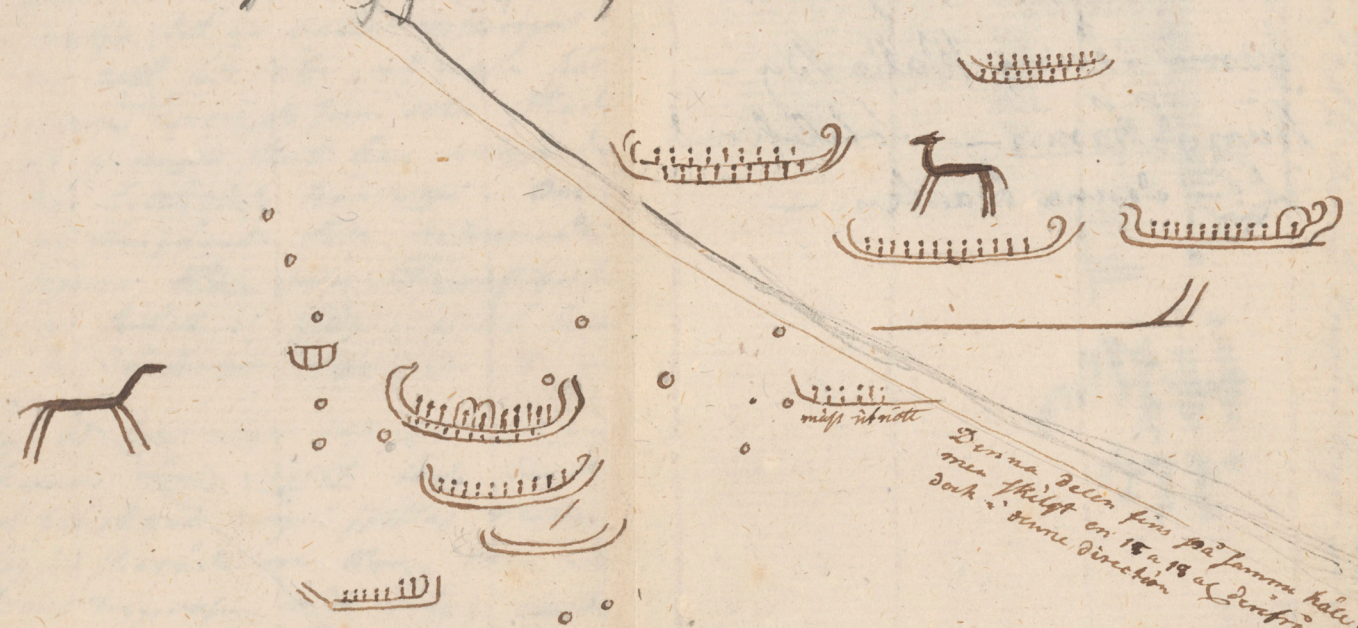 mäst utnött
Denna delen fins på samma häll
men skilgt en 15 a 18 al
dock i denne direction